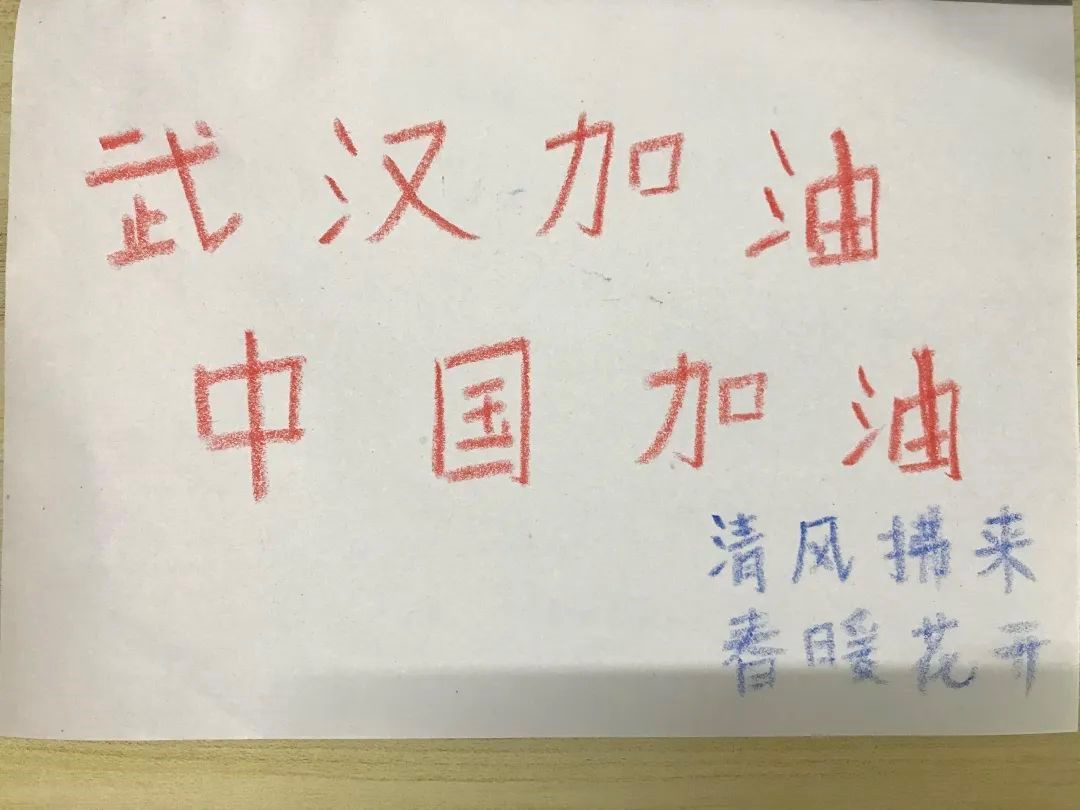 武汉加油
中国加油
清风拂来
春暖花开